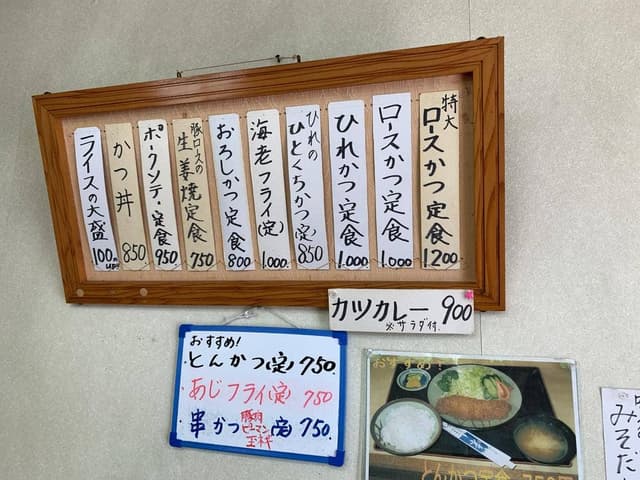 特大
ロースかつ定食
1200
ロースかつ定食
1.000
ひれかつ定食
1.000
ひれの
ひとくちかつ(定)
850
海老フライ(定)
1.000
おろしかつ定食
800
豚ロースの
生姜焼定食
750
ポークソテー定食
950
かつ丼
850
ライスの大盛
100円
UP
カツカレー 900
※サラダ付
おすすめ!
とんかつ(定) 750.
あじフライ(定) 750
串かつ(定) 750.
豚肉
ピーマン
玉ネギ
おすすめ!
とんかつ定食 750円
みそだ